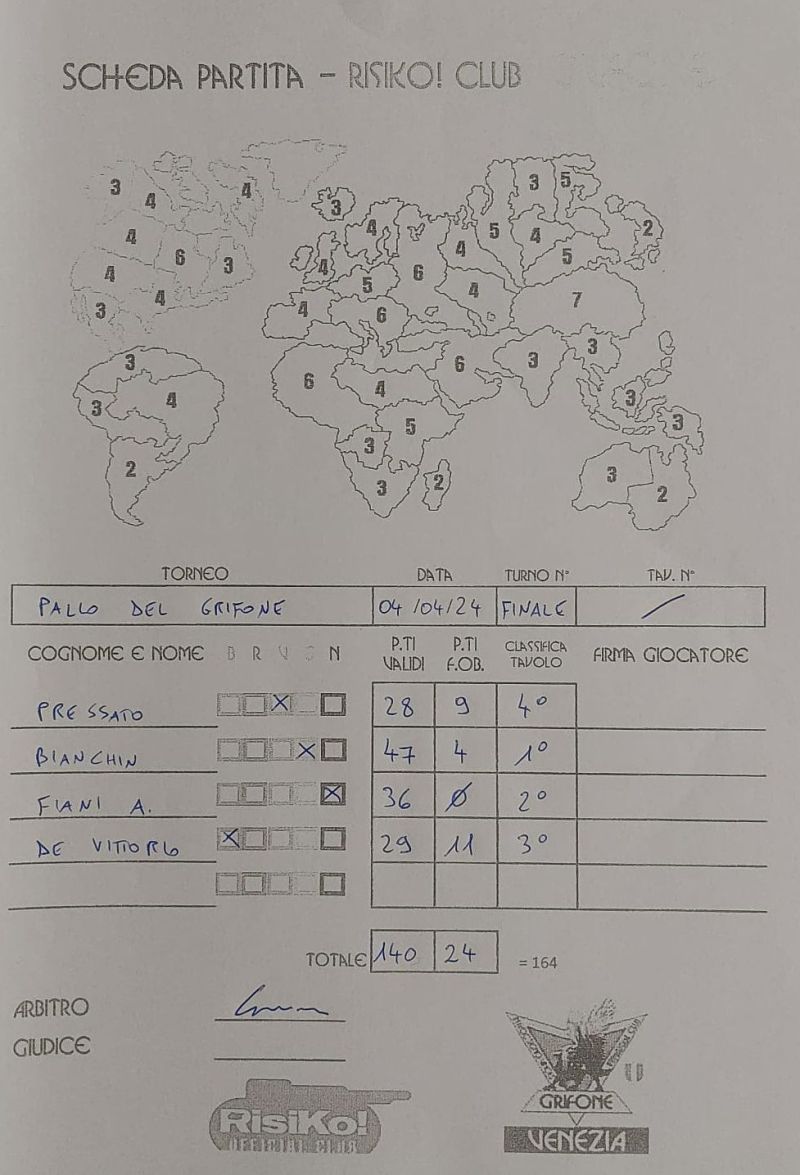 SCHEDA PARTITA – RISIKO! CLUB
3 4 4 3 4 5 3 5 2
4 6 3 4 4 5 6 4 4 5
4 4 3 4 6 4 7
3 6 4 6 3 3
3 4 5 3 3
2 3 3 2 3 2
TORNEO DATA TURNO N° TAV. N°
PALLO DEL GRIFONE 04/04/24 FINALE /
COGNOME E NOME B R V G N P.TI VALIDI P.TI F.OB. CLASSIFICA TAVOLO FIRMA GIOCATORE
PRESSATO X 28 9 4°
BIANCHIN X 47 4 1°
FIANI A. X 36 Ø 2°
DE VITTORIO X 29 11 3°
TOTALE 140 24 = 164
ARBITRO
GIUDICE
RisiKo!
OFFICIAL CLUB
GRIFONE
VENEZIA